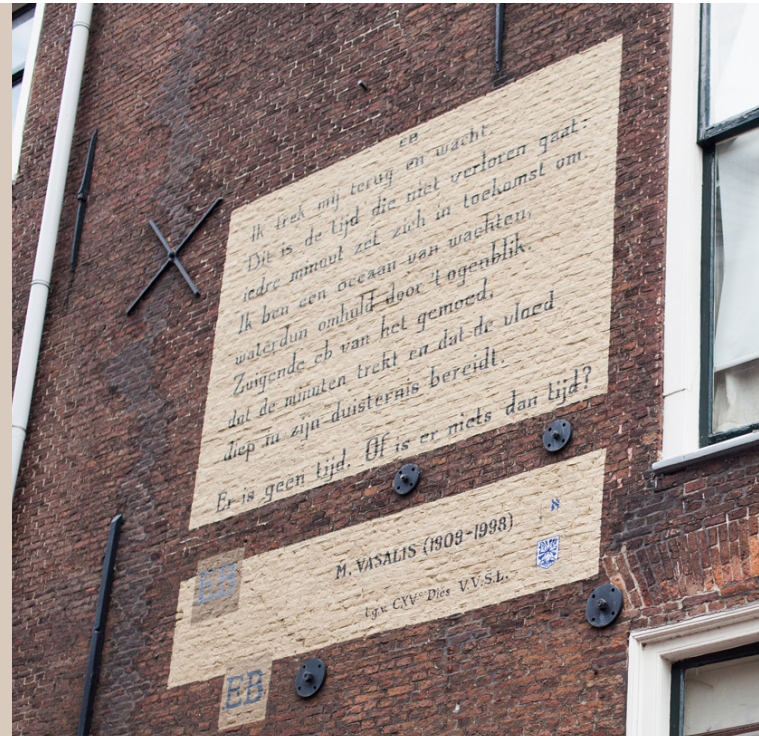 EB
Ik trek mij terug en wacht.
Dit is de tijd die niet verloren gaat:
iedre minuut zet zich in toekomst om.
Ik ben een oceaan van wachten,
waterdun omhuld door 't ogenblik.
Zuigende eb van het gemoed,
dat de minuten trekt en dat de vloed
diep in zijn duisternis bereidt.
Er is geen tijd. Of is er niets dan tijd?
M. VASALIS (1909-1998)
t.g.v. CXVde Dies V.V.S.L.
EB
EB